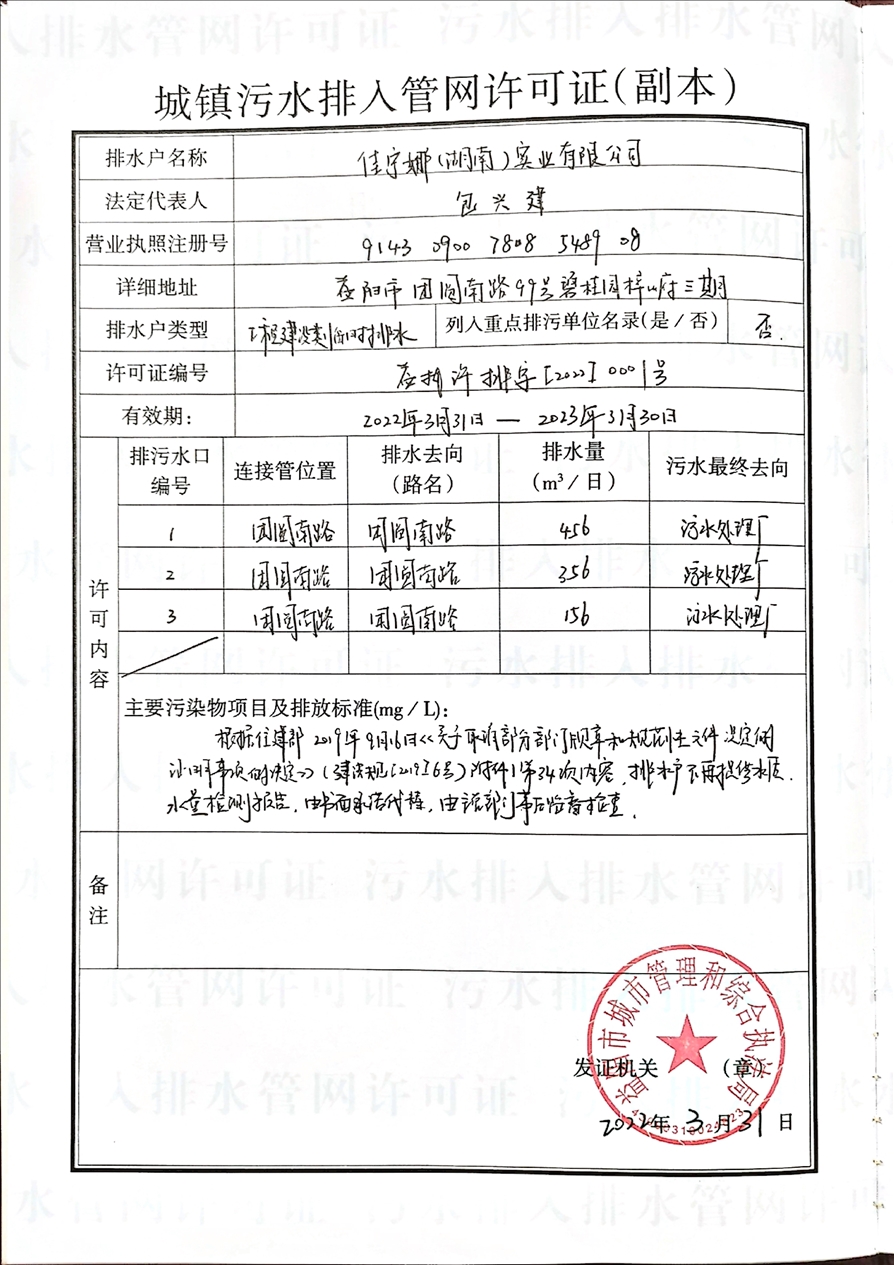 城镇污水排入管网许可证(副本)
排水户名称 佳宇娜(湖南)实业有限公司
法定代表人 包兴建
营业执照注册号 9143 0900 7808 5489 08
详细地址 益阳市团圆南路99号碧桂园梓山府三期
排水户类型 工程建设类临时排水 列入重点排污单位名录(是/否) 否
许可证编号 益排许排字[2022]0001号
有效期: 2022年3月31日 — 2023年3月30日
许可内容
排污水口编号 连接管位置 排水去向(路名) 排水量(m³/日) 污水最终去向
1 团圆南路 团圆南路 456 污水处理厂
2 团圆南路 团圆南路 356 污水处理厂
3 团圆南路 团圆南路 156 污水处理厂
主要污染物项目及排放标准(mg/L):
根据住建部2019年9月16日<<关于取消部分部门规章和规范性文件设定的
证明事项的决定>>(建法规[2019]6号)附件1第34次内容,排水户不再提供水质、
水量检测报告,由书面承诺代替,由该部门事后监督检查.
备注
益阳市城市管理和综合执法局
发证机关 (章)
2022年3月31日